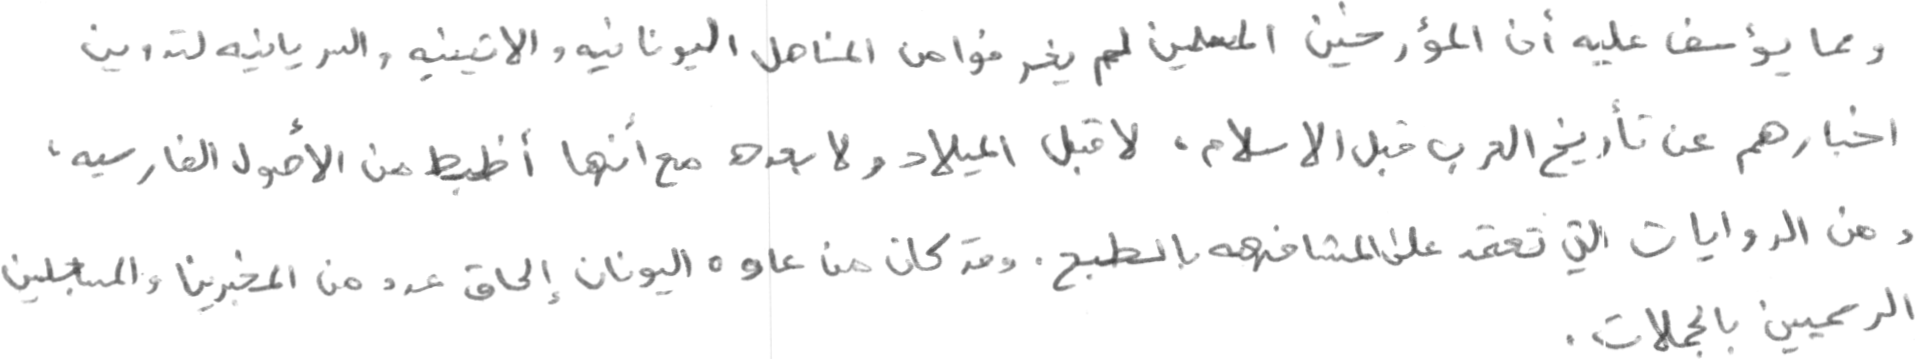 ومما يؤسف عليه أن المؤرخين المسلمين لم يغرفوا من المناهل اليونانيه والاتينيه والسريانيه لتدوين
اخبارهم عن تأريخ العرب قبل الاسلام، لا قبل الميلاد ولا بعده مع أنها أظبط من الأصول الفارسيه،
ومن الروايات التي تعتمد على المشافهه بالطبع. وقد كان من عادة اليونان إلحاق عدد من المخبرين والمسجلين
الرسميين بالحملات.